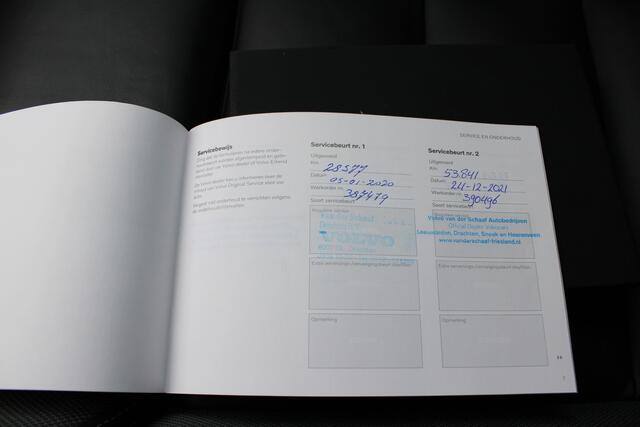 SERVICE EN ONDERHOUD
Servicebewijs
Zorg dat de formulieren na iedere onder-
houdsbeurt worden afgestempeld en gete-
kend door uw Volvo dealer of Volvo Erkend
Reparateur.
De Volvo dealer kan u informeren over de
inhoud van Volvo Original Service voor uw
auto.
Vergeet niet onderhoud te verrichten volgens
de onderhoudsintervallen.
Servicebeurt nr. 1
Uitgevoerd
Km. 28577
Datum 05-01-2020
Werkorder nr. 387479
Soort servicebeurt
Reguliere service
van der Schaaf
Drachten B.V.
VOLVO
Opmerking
Servicebeurt nr. 2
Uitgevoerd
Km. 53.841
Datum 24-12-2021
Werkorder nr. 390496
Soort servicebeurt
Volvo van der Schaaf Autobedrijven
Official Dealer
Leeuwarden, Drachten, Sneek en Heerenveen
www.vanderschaaf-friesland.nl
Opmerking
7